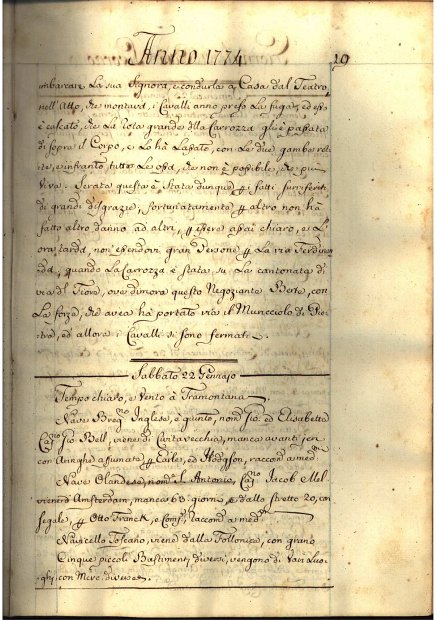 Anno 1774
19
imbarcare La sua Signora, e condurla a Casa dal Teatro,
nell'Atto, che montava, i Cavalli anno preso La fuga, ed esso
è cascato, che La Rota grande della Carrozza gli è passata
di sopra il Corpo, e Lo hà Lasciato, con Le due gambe
e infrante tutte Le ossa, che non è possibile, che più
viva. Serata questa è Stata dunque
di grandi disgrazie, fortunatamente altro non hà
fatto altro danno ad altri, essere assai chiaro, e L'
ora tarda, non essendovi gran Persone La via Ferdinan
da, quando La Carrozza è stata su La cantonata di
via del Fiore, ove dimora questo Negoziante Berte, con
La forza, che avea ha portato via il Muricciolo di Pie
tra, ed allora i Cavalli si sono fermati.
Sabbato 22 Gennaro
Tempo chiaro, e Vento à Tramontana
Nave Inglese, è giunto, nom. Gio. ed Elisabetta
Gio Bell, viene di Civitavecchia, manca avanti jeri
con Aringhe affumate Earle, ed Hodgson, raccom. a med.
Nave Olandese, nom. S. Antonio, Jacob Mel
viene d'Amsterdam, manca 63 giorni, e dallo stretto 20, con
Segale, Otto Franck, e Comp. Raccom. a med.
Navicello Toscano, viene dalla Follonica, con grano
Cinque piccoli Bastimenti diversi, vengono di Vari Luo
ghi, con Merc. diverse.